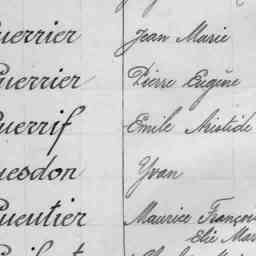 Guerrier Jean Marie
Guerrier Pierre Eugène
Guerrif Emile Aristide
Guesdon Yvan
Gueutier Maurice François
Elie Mar